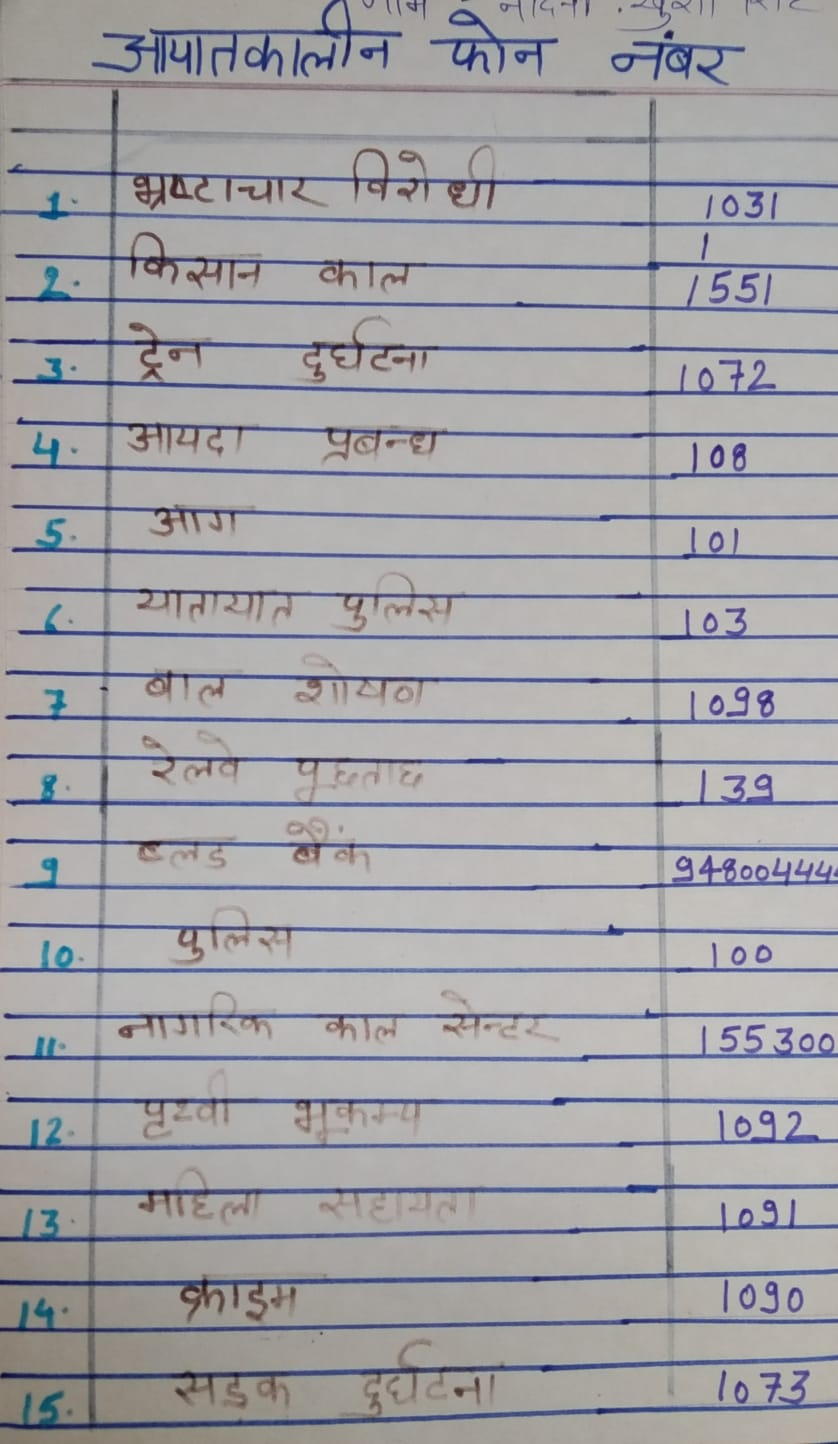 नाम
आपातकालीन फोन नंबर
1. भ्रष्टाचार विरोधी 1031
1
2. किसान काल 1551
3. ट्रेन दुर्घटना 1072
4. आपदा प्रबन्ध 108
5. आग 101
6. यातायात पुलिस 103
7 बाल शोषण 1098
8. रेलवे पूछताछ 139
9 ब्लड बैंक 9480044444
10. पुलिस 100
11. नागरिक काल सेन्टर 155300
12. पृथ्वी भूकम्प 1092
13. महिला सहायता 1091
14. क्राइम 1090
15. सड़क दुर्घटना 1073